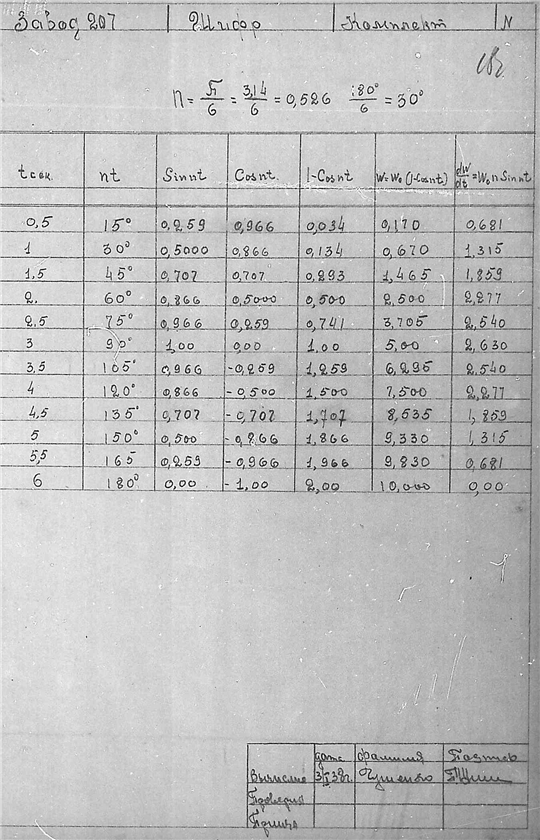 Завод 207 Шифр Комплект N
18г
n = π/6 = 3,14/6 = 0,526 180°/6 = 30°
t сек. nt Sin nt Cos nt 1-Cos nt W=W₀(1-Cos nt) dw/dt=W₀ n Sin nt
0,5 15° 0,259 0,966 0,034 0,170 0,681
1 30° 0,5000 0,866 0,134 0,670 1,315
1,5 45° 0,707 0,707 0,293 1,465 1,859
2, 60° 0,866 0,5000 0,500 2,500 2,277
2,5 75° 0,966 0,259 0,741 3,705 2,540
3 90° 1,00 0,00 1,00 5,00 2,630
3,5 105° 0,966 -0,259 1,259 6,295 2,540
4 120° 0,866 -0,500 1,500 7,500 2,277
4,5 135° 0,707 -0,707 1,707 8,535 1,859
5 150° 0,500 -0,866 1,866 9,330 1,315
5,5 165 0,259 -0,966 1,966 9,830 0,681
6 180° 0,00 -1,00 2,00 10,000 0,00
дата фамилия Подпись
Вычислил
Проверил
Принял